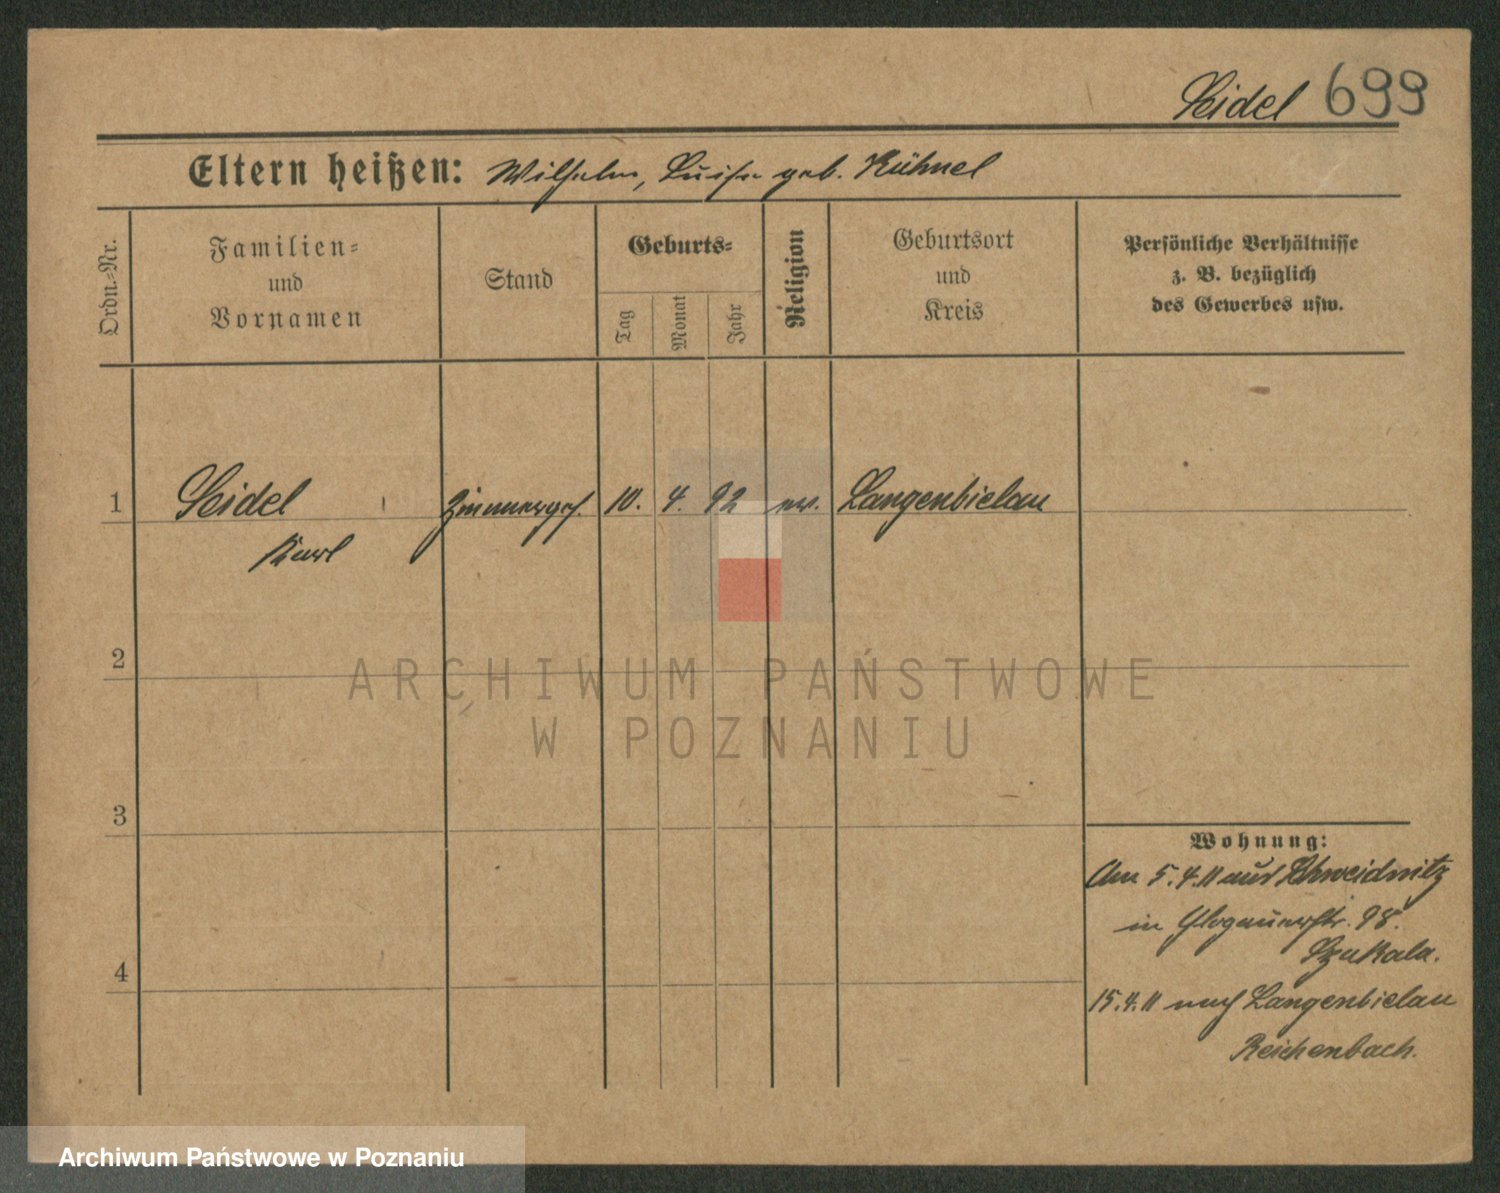 Seidel 699
Eltern heißen: Wilhelm, Luise geb. Kühnel
Ordn.-Nr.
Familien-
und
Vornamen
Stand
Geburts-
Tag
Monat
Jahr
Religion
Geburtsort
und
Kreis
Persönliche Verhältnisse
z. B. bezüglich
des Gewerbes usw.
1 Seidel Zimmerges. 10. 4. 92 ev. Langenbielau
Karl
2
3
4
Wohnung:
Am 5.4.11 aus Schweidnitz
in Glogauerstr. 98.
Szukala.
15.4.11 nach Langenbielau
Reichenbach.
ARCHIWUM PAŃSTWOWE
W POZNANIU
Archiwum Państwowe w Poznaniu